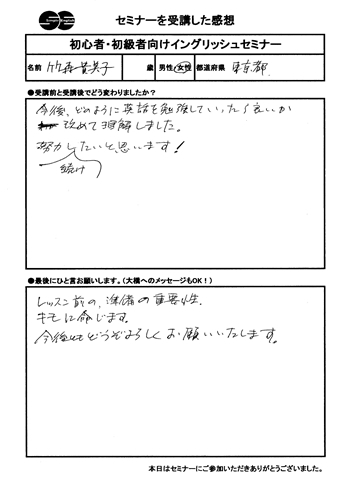 セミナーを受講した感想
初心者・初級者向けイングリッシュセミナー
名前 竹森 貴美子 歳 男性・女性 都道府県 東京都
●受講前と受講後でどう変わりましたか？
今後、どのように英語を勉強していったら良いか
改めて理解しました。
努力したいと思います！
続け
●最後にひと言お願いします。（大橋へのメッセージもOK！）
レッスン前の、準備の重要性。
キモに命じます。
今後ともどうぞよろしくお願いいたします。
本日はセミナーにご参加いただきありがとうございました。